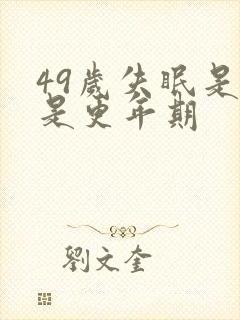 49歲失眠是
是更年期
劉文奎